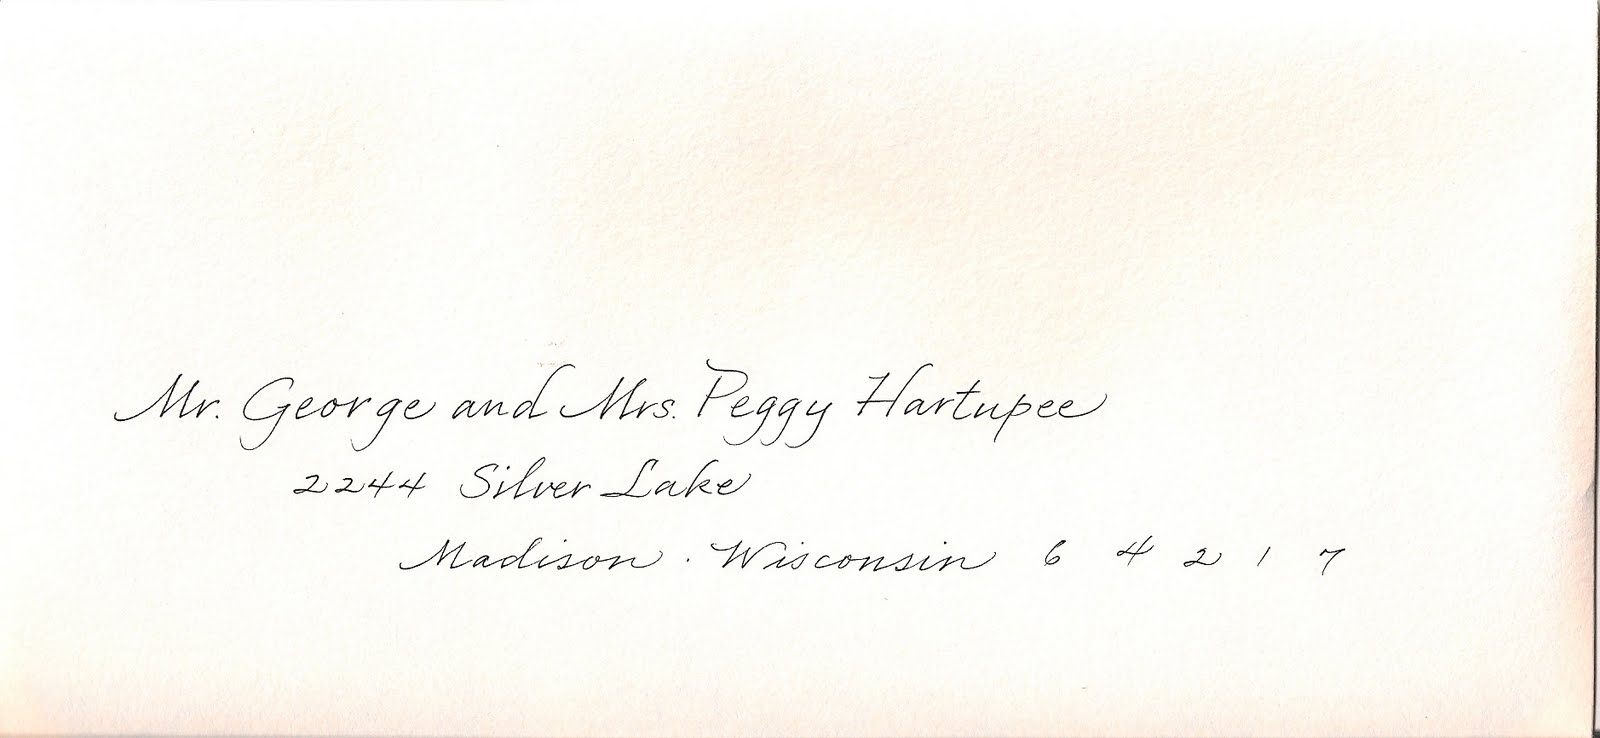 Mr. George and Mrs. Peggy Hartupee
2244 Silver Lake
Madison · Wisconsin 6 4 2 1 7